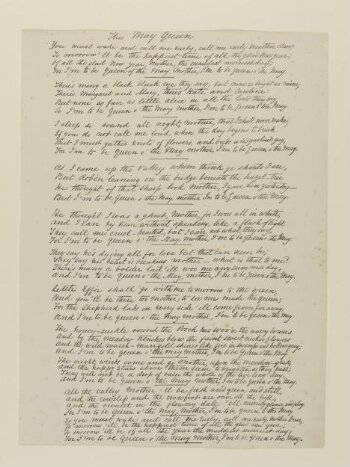 The May Queen
You must wake and call me early, call me early, mother dear;
To-morrow 'ill be the happiest time of all the glad new year;
Of all the glad New year, Mother, the maddest merriest day;
For I'm to be Queen o' the May, Mother, I'm to be Queen o' the May.
There's many a black black eye they say, but none so bright as mine;
There's Margaret and Mary, there's Kate and Caroline:
But none so fair as little Alice in all the land they say,
So I'm to be Queen o' the May, Mother, I'm to be Queen o' the May.
I sleep so sound all night, Mother, that I shall never wake,
If you do not call me loud when the day begins to break:
But I must gather knots of flowers, and buds and garlands gay,
For I'm to be Queen o' the May, mother, I'm to be Queen o' the May.
As I came up the valley whom think ye should I see,
But Robin leaning on the bridge beneath the hazel tree
He thought of that sharp look Mother, I gave him yesterday
But I'm to be Queen o' the May, mother, I'm to be Queen o' the May.
He thought I was a ghost, Mother, for I was all in white,
And I ran by him without speaking, like a flash of light.
They call me cruel-hearted, but I care not what they say,
For I'm to be Queen o' the May, Mother, I'm to be Queen o' the May.
They say he's dying all for love but that can never be:
They say his heart is breaking mother, what is that to me?
There's many a bolder lad 'ill woo me any summer day,
And I'm to be Queen o' the May, mother, I'm to be Queen o' the May.
Little Effie shall go with me tomorrow to the green,
And you'll be there too Mother, to see me made the Queen;
For the Shepherd lads on every side 'ill come from far away,
And I'm to be Queen o' the May, Mother, I'm to be Queen o' the May.
The honey-suckle round the Porch has wov'n its wavy bowers
And by the meadow trenches blow the faint sweet cuckoo flowers
and the wild marsh marigold shines like fire in swamps and hollows gray,
and I'm to be Queen o' the May, mother, I'm to be Queen o' the May.
The night winds come and go Mother, upon the meadow grass,
And the happy stars above them seem to brighten as they pass;
There will not be a drop of rain the whole of the live long day,
and I'm to be Queen o' the May, mother, I'm to be Queen o' the May.
All the valley Mother, 'ill be fresh and green and still,
And the cowslip and the crowfoot are over all the hill,
and the rivulet in the flowery dale 'ill merrily glance and play,
For I'm to be Queen o' the May, mother, I'm to be Queen o' the May.
So you must wake and call me early, call me early mother dear,
To-morrow 'ill be the happiest time of all the glad new year;
To-morrow 'ill be of all the year the maddest merriest day,
For I'm to be Queen o' the May mother, I'm to be Queen o' the May.